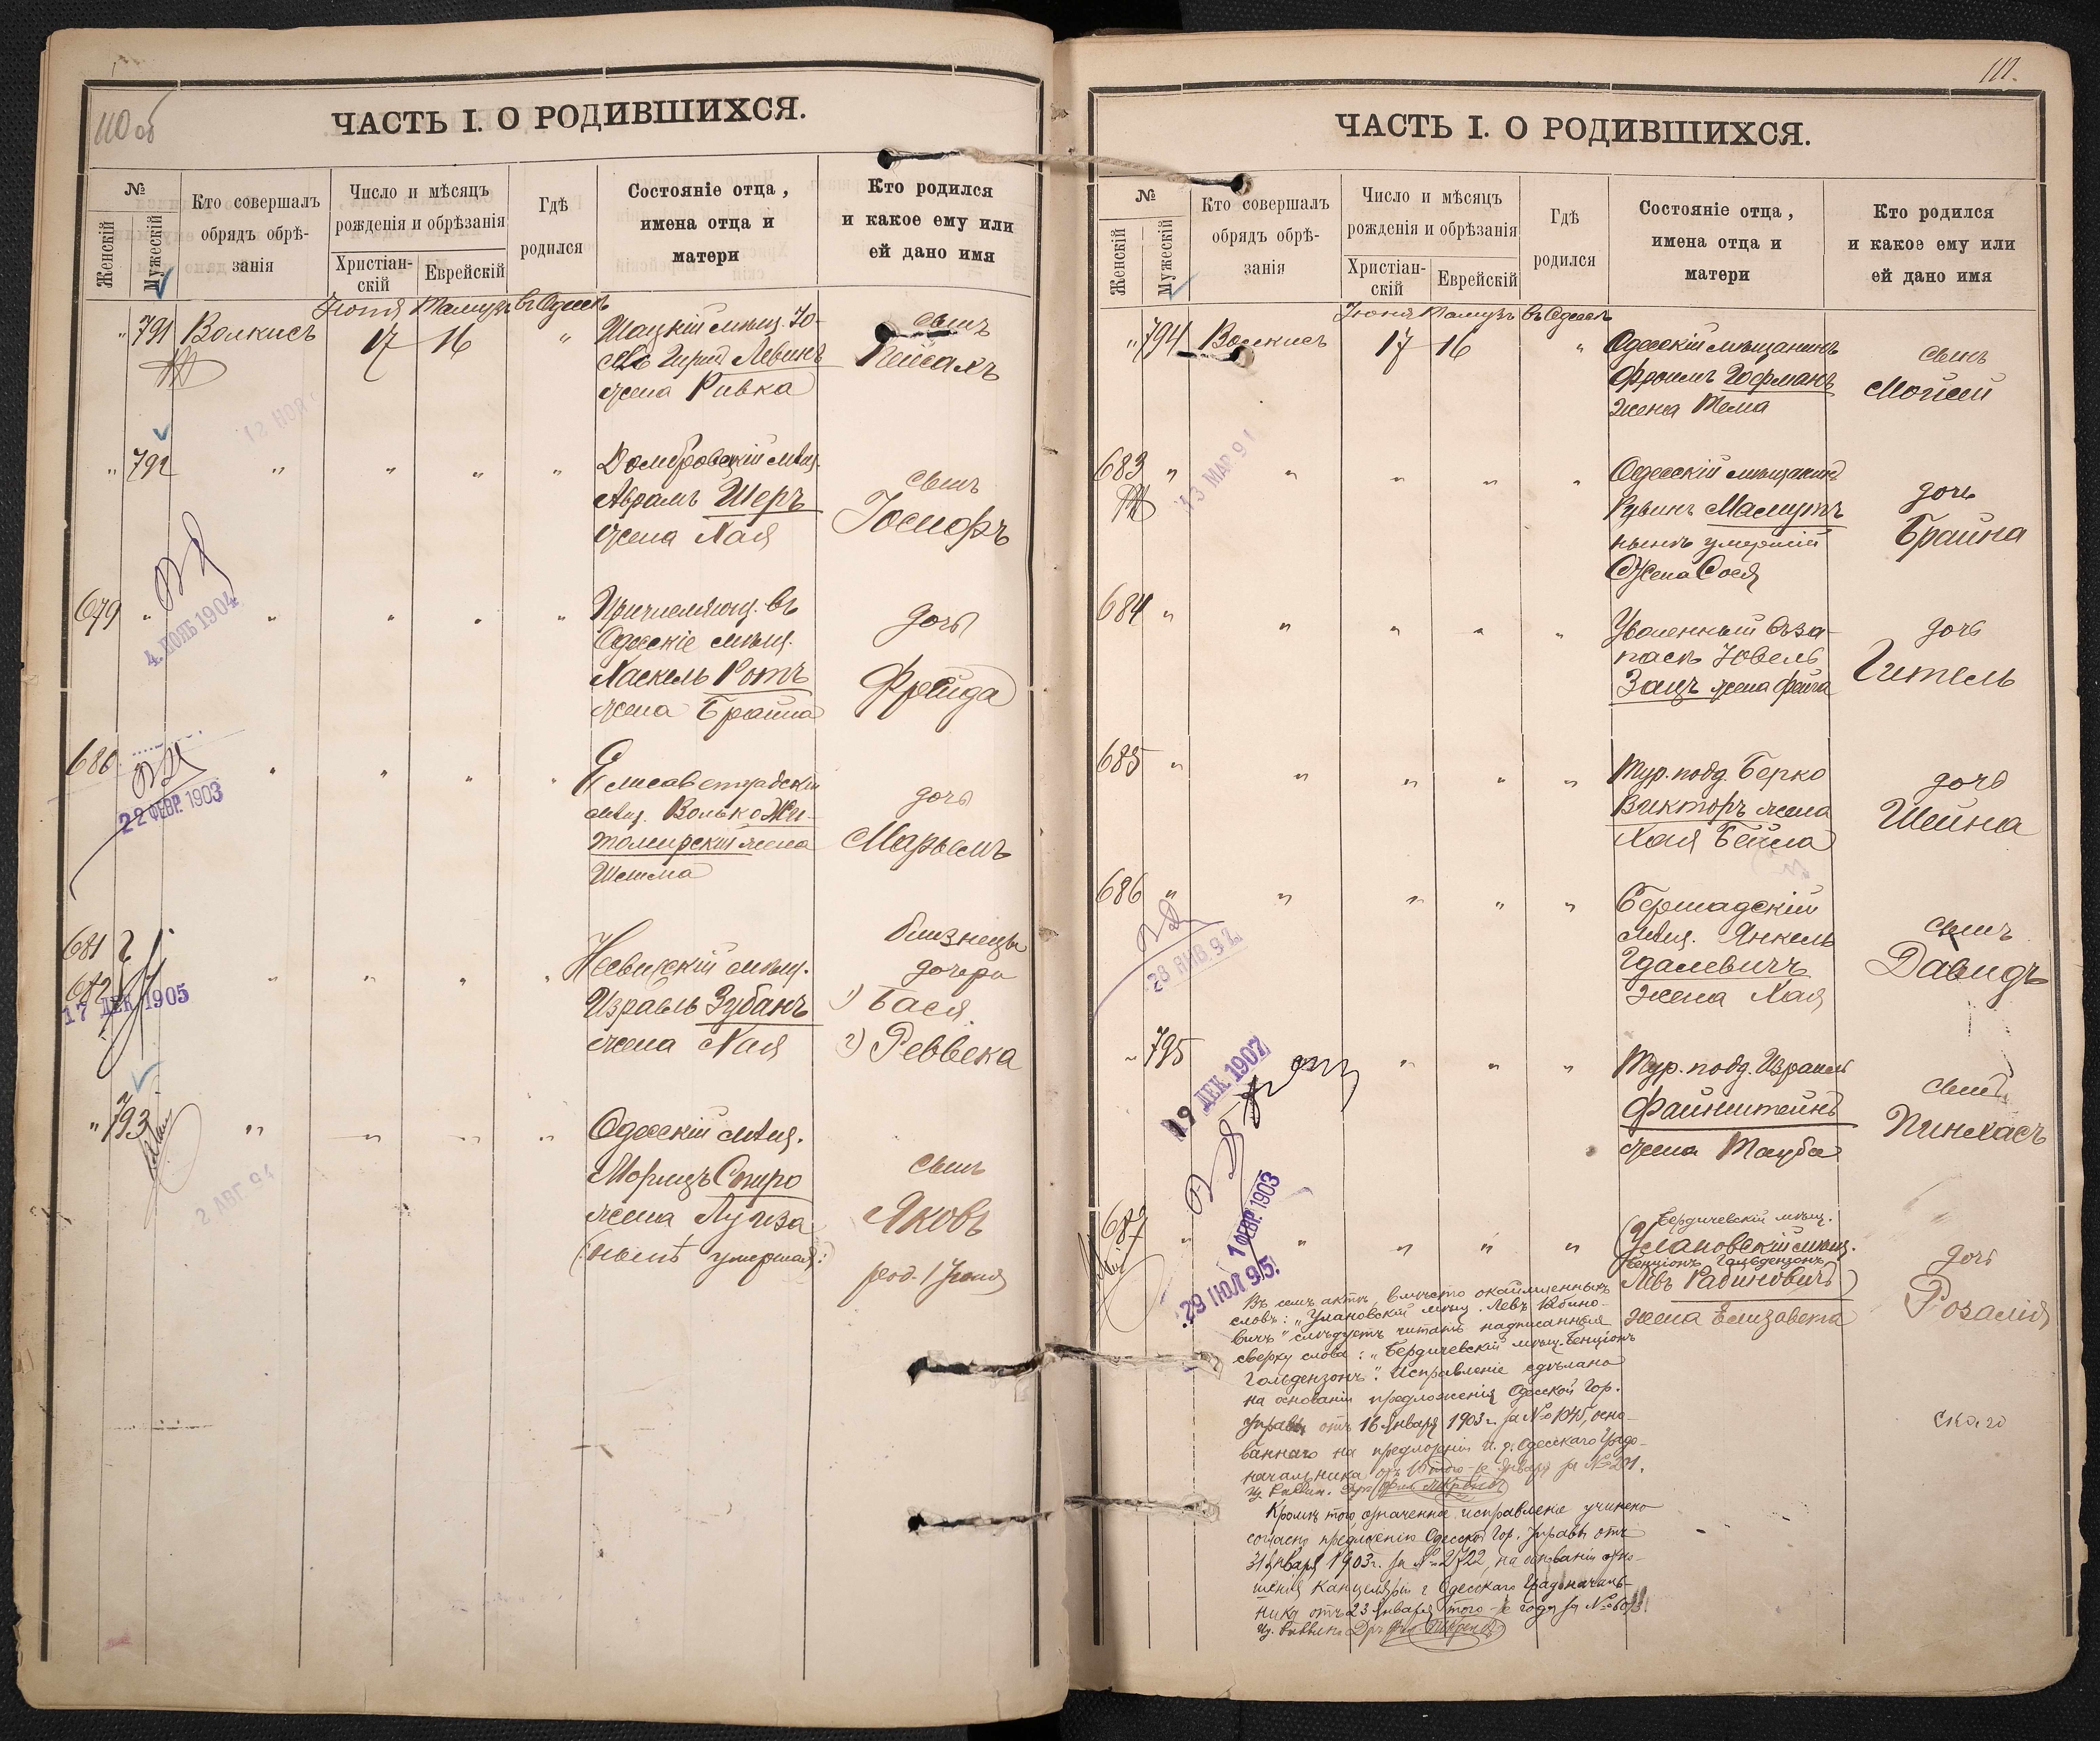 110 об
ЧАСТЬ I. О РОДИВШИХСЯ.
№
Женскій
Мужескій
Кто совершалъ
обрядъ обрѣ-
занія
Число и мѣсяцъ
рожденія и обрѣзанія
Христіан-
скій
Еврейскій
Гдѣ
родился
Состояніе отца,
имена отца и
матери
Кто родился
и какое ему или
ей дано имя
Іюня Тамузъ въ Одессѣ
" 791 Волкисъ 17 16 "
Шацкій мѣщ. Іо-
Гиршъ Левинъ
жена Ривка
сынъ
Пейсахъ
" 792 " " " "
Домбровецкій мѣщ.
Абрамъ Шеръ
жена Хая
сынъ
Іосифъ
4. НОЯБ 1904
679 " " " " "
Причисляющ. въ
Одесскіе мѣщ.
Хаскель Ротъ
жена Брайна
дочь
Фрейда
680 " " " "
22 ФЕВР. 1903
Елисаветградскій
мѣщ. Волько Жи-
томирскій жена
Шейма
дочь
Марьемъ
681
682 " " " "
17 ДЕК. 1905
Несвижскій мѣщ.
Израиль Зубанъ
жена Хая
близнецы
дочери
1) Бася
2) Реввека
" 793 " " " "
2 АВГ. 94
Одесскій мѣщ.
Морицъ Спиро
жена Луиза
(нынѣ умершая:)
сынъ
Яковъ
род. 1 Іюня
111.
ЧАСТЬ I. О РОДИВШИХСЯ.
№
Женскій
Мужескій
Кто совершалъ
обрядъ обрѣ-
занія
Число и мѣсяцъ
рожденія и обрѣзанія
Христіан-
скій
Еврейскій
Гдѣ
родился
Состояніе отца,
имена отца и
матери
Кто родился
и какое ему или
ей дано имя
Іюня Тамузъ въ Одессѣ
" 794 Волкисъ 17 16 "
Одесскій мѣщанинъ
Фроимъ Гофманъ
жена Тема
сынъ
Мойсей
683 " " " " "
13 МАР. 91
Одесскій мѣщанинъ
Рувинъ Масмутъ
нынѣ умершій
Жена Сося
дочь
Брайна
684 " " " " "
Уволенный въ за-
пасъ Іовель
Зацъ жена Файга
дочь
Гитель
685 " " " " "
Тур. подд. Берко
Викторъ жена
Хая Бейла
дочь
Шейна
686 " " " " "
28 ЯНВ. 92
Бершадскій
мѣщ. Янкель
Гдалевичъ
жена Хая
сынъ
Давидъ
" 795 " " "
19 ДЕК. 1907
Тур. подд. Израиль
Файнштейнъ
жена Тауба
сынъ
Пинхасъ
687 " " " " "
1 ФЕВР. 1903
29 ІЮЛ 95.
Бердичевскій мѣщ.
(Улановскій мѣщ.
Бенціонъ Гольдензонъ
Левъ Рабиновичъ)
жена Елизавета
дочь
Розалія
Въ семъ актѣ, вмѣсто окаймленныхъ
словъ: "Улановскій мѣщ. Левъ Рабино-
вичъ" слѣдуетъ читать надписанныя
сверху слова: "Бердичевскій мѣщ. Бенціонъ
Гольдензонъ". Исправленіе сдѣлано
на основаніи предложенія Одесской Гор.
Управы отъ 16 Января 1903 г. за № 1045, осно-
ваннаго на предложеніи и. д. Одесскаго Градо-
начальника отъ того-же Января за № 201.
Кромѣ того, означенное исправленіе учинено
согласно предложенію Одесской Гор. Управы отъ
31 Января 1903 г. за № 2722, на основаніи отно-
шенія Канцеляріи г. Одесскаго Градоначаль-
ника отъ 23 Января того-же года за №
скаго